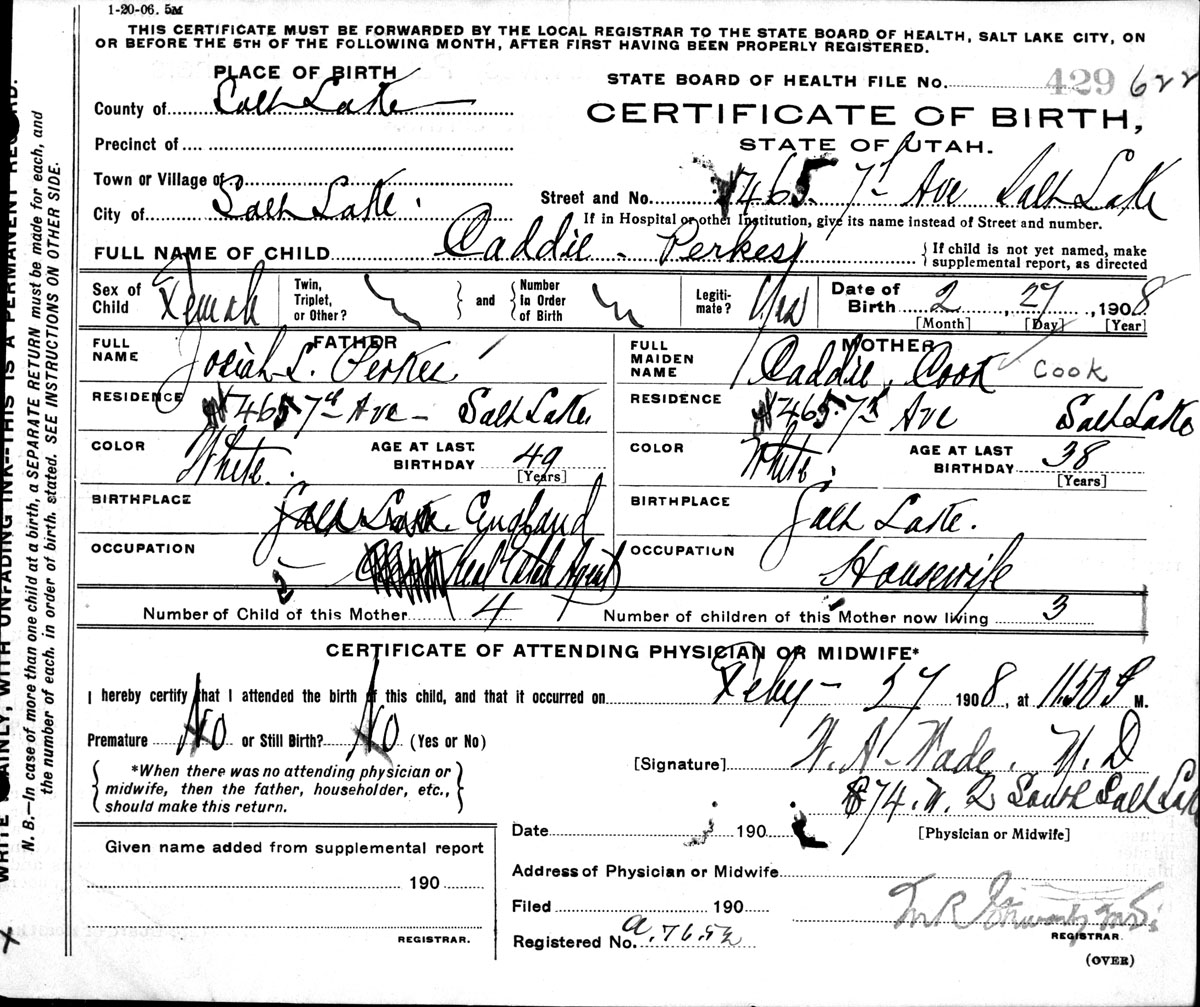 1-20-06. 5M
THIS CERTIFICATE MUST BE FORWARDED BY THE LOCAL REGISTRAR TO THE STATE BOARD OF HEALTH, SALT LAKE CITY, ON
OR BEFORE THE 5TH OF THE FOLLOWING MONTH, AFTER FIRST HAVING BEEN PROPERLY REGISTERED.
PLACE OF BIRTH
County of Salt Lake
Precinct of
Town or Village of
City of Salt Lake.
STATE BOARD OF HEALTH FILE No. 429 622
CERTIFICATE OF BIRTH,
STATE OF UTAH.
Street and No. 465 7th Ave Salt Lake
If in Hospital or other Institution, give its name instead of Street and number.
FULL NAME OF CHILD Caddie - Perkes
If child is not yet named, make
supplemental report, as directed
Sex of Child Female
Twin, Triplet, or Other?
and
Number In Order of Birth
Legiti-mate? Yes
Date of Birth 2, 27, 1908
[Month] [Day] [Year]
FATHER
FULL NAME Josiah L. Perkes
RESIDENCE 465 7th Ave - Salt Lake
COLOR White.
AGE AT LAST BIRTHDAY 49
[Years]
BIRTHPLACE England
OCCUPATION Real Estate Agent
MOTHER
FULL MAIDEN NAME Caddie. Cook Cook
RESIDENCE 465 7th Ave Salt Lake
COLOR White.
AGE AT LAST BIRTHDAY 38
[Years]
BIRTHPLACE Salt Lake.
OCCUPATION Housewife
Number of Child of this Mother 4
Number of children of this Mother now living 3
CERTIFICATE OF ATTENDING PHYSICIAN OR MIDWIFE*
I hereby certify that I attended the birth of this child, and that it occurred on Feby - 27 1908, at 11.50 P M.
Premature No or Still Birth? No (Yes or No)
*When there was no attending physician or
midwife, then the father, householder, etc.,
should make this return.
[Signature] W. A. Wade. M.D
74. W. 2 South Salt Lake
[Physician or Midwife]
Date 190
Given name added from supplemental report
190
REGISTRAR.
Address of Physician or Midwife
Filed 190
Registered No. a.7652
REGISTRAR
(OVER)
WRITE PLAINLY, WITH UNFADING INK--THIS IS A PERMANENT RECORD.
N. B.—In case of more than one child at a birth, a SEPARATE RETURN must be made for each, and
the number of each. in order of birth. stated. SEE INSTRUCTIONS ON OTHER SIDE.